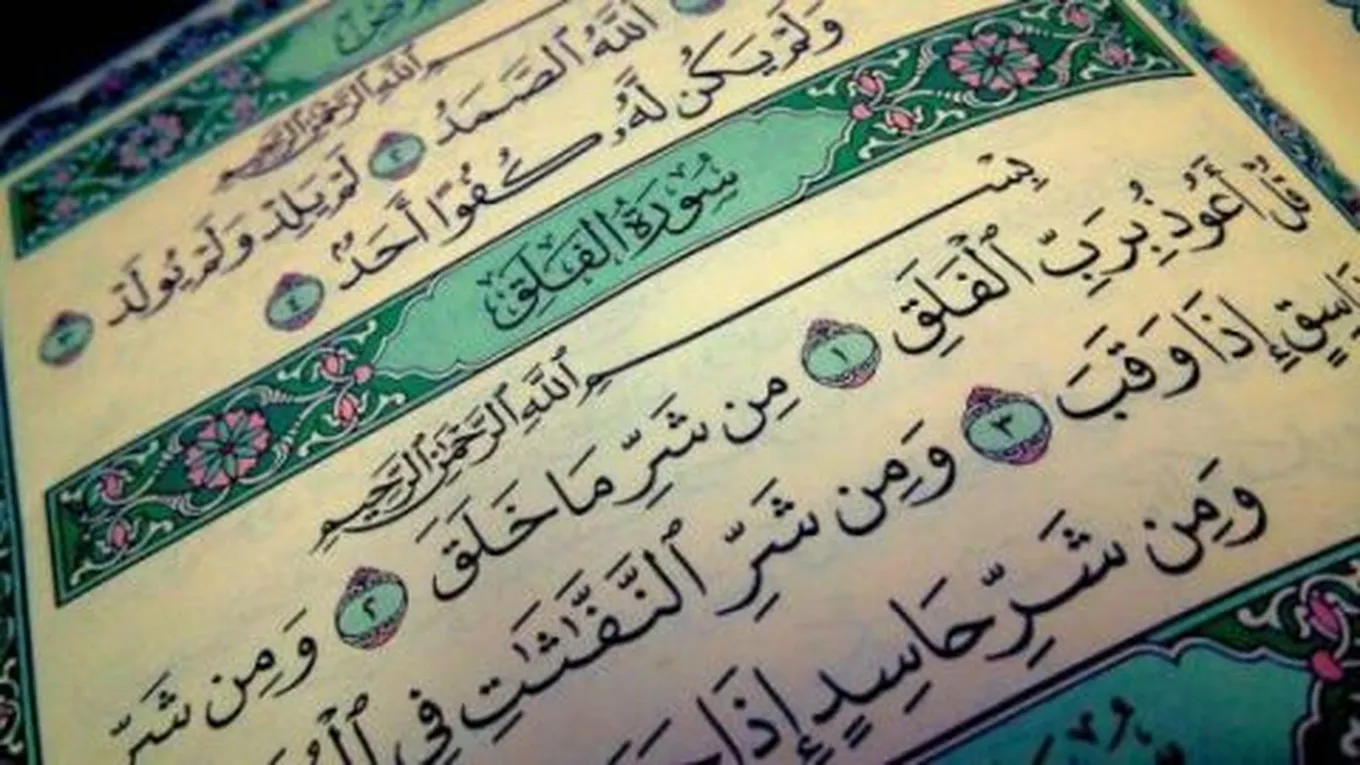 بِسْمِ ٱللَّهِ ٱلرَّحْمَٰنِ ٱلرَّحِيمِ
ٱللَّهُ ٱلصَّمَدُ ٢ لَمْ يَلِدْ وَلَمْ يُولَدْ ٣
وَلَمْ يَكُن لَّهُۥ كُفُوًا أَحَدٌۢ ٤
سُورَةُ الفَلَقِ
بِسْمِ ٱللَّهِ ٱلرَّحْمَٰنِ ٱلرَّحِيمِ
قُلْ أَعُوذُ بِرَبِّ ٱلْفَلَقِ ١ مِن شَرِّ مَا خَلَقَ ٢ وَمِن شَرِّ
إِذَا وَقَبَ ٣ وَمِن شَرِّ ٱلنَّفَّٰثَٰتِ فِي
وَمِن شَرِّ حَاسِدٍ إِذَا